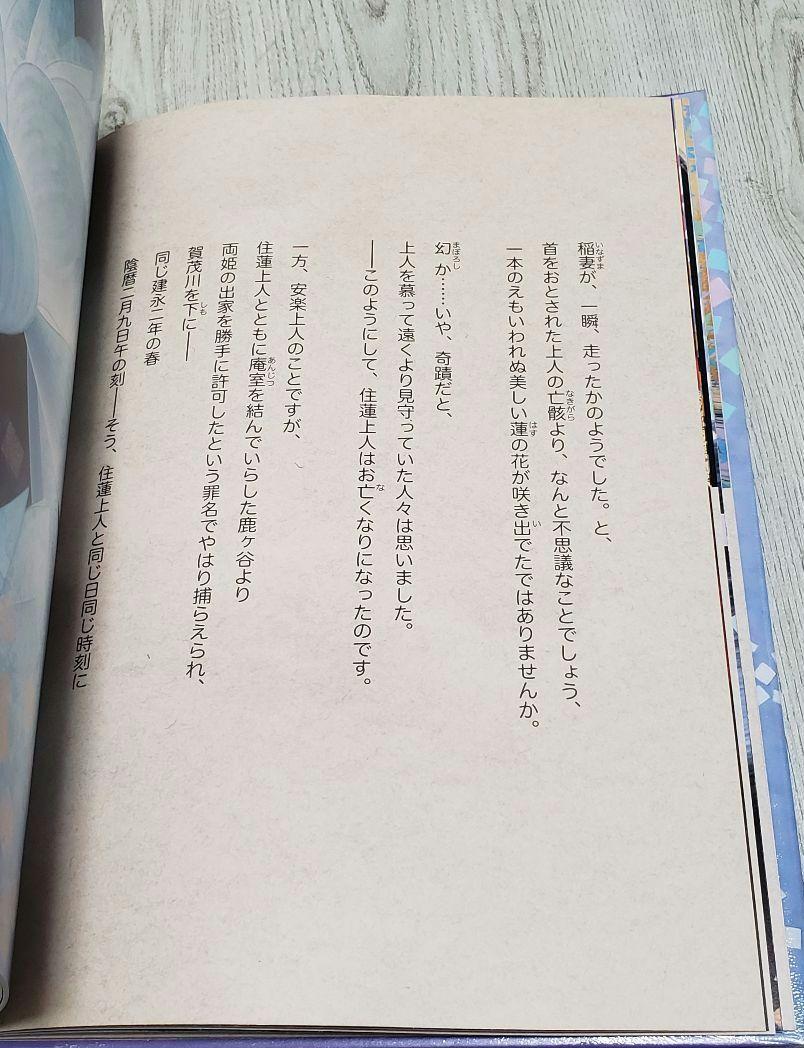 稲妻が、一瞬、走ったかのようでした。と、
首をおとされた上人の亡骸より、なんと不思議なことでしょう、
一本のえもいわれぬ美しい蓮の花が咲き出でたではありませんか。
幻か……いや、奇蹟だと、
上人を慕って遠くより見守っていた人々は思いました。
──このようにして、住蓮上人はお亡くなりになったのです。
一方、安楽上人のことですが、
住蓮上人とともに庵室を結んでいらした鹿ヶ谷より
両姫の出家を勝手に許可したという罪名でやはり捕らえられ、
賀茂川を下に──
同じ建永二年の春
陰暦二月九日午の刻──そう、住蓮上人と同じ日同じ時刻に